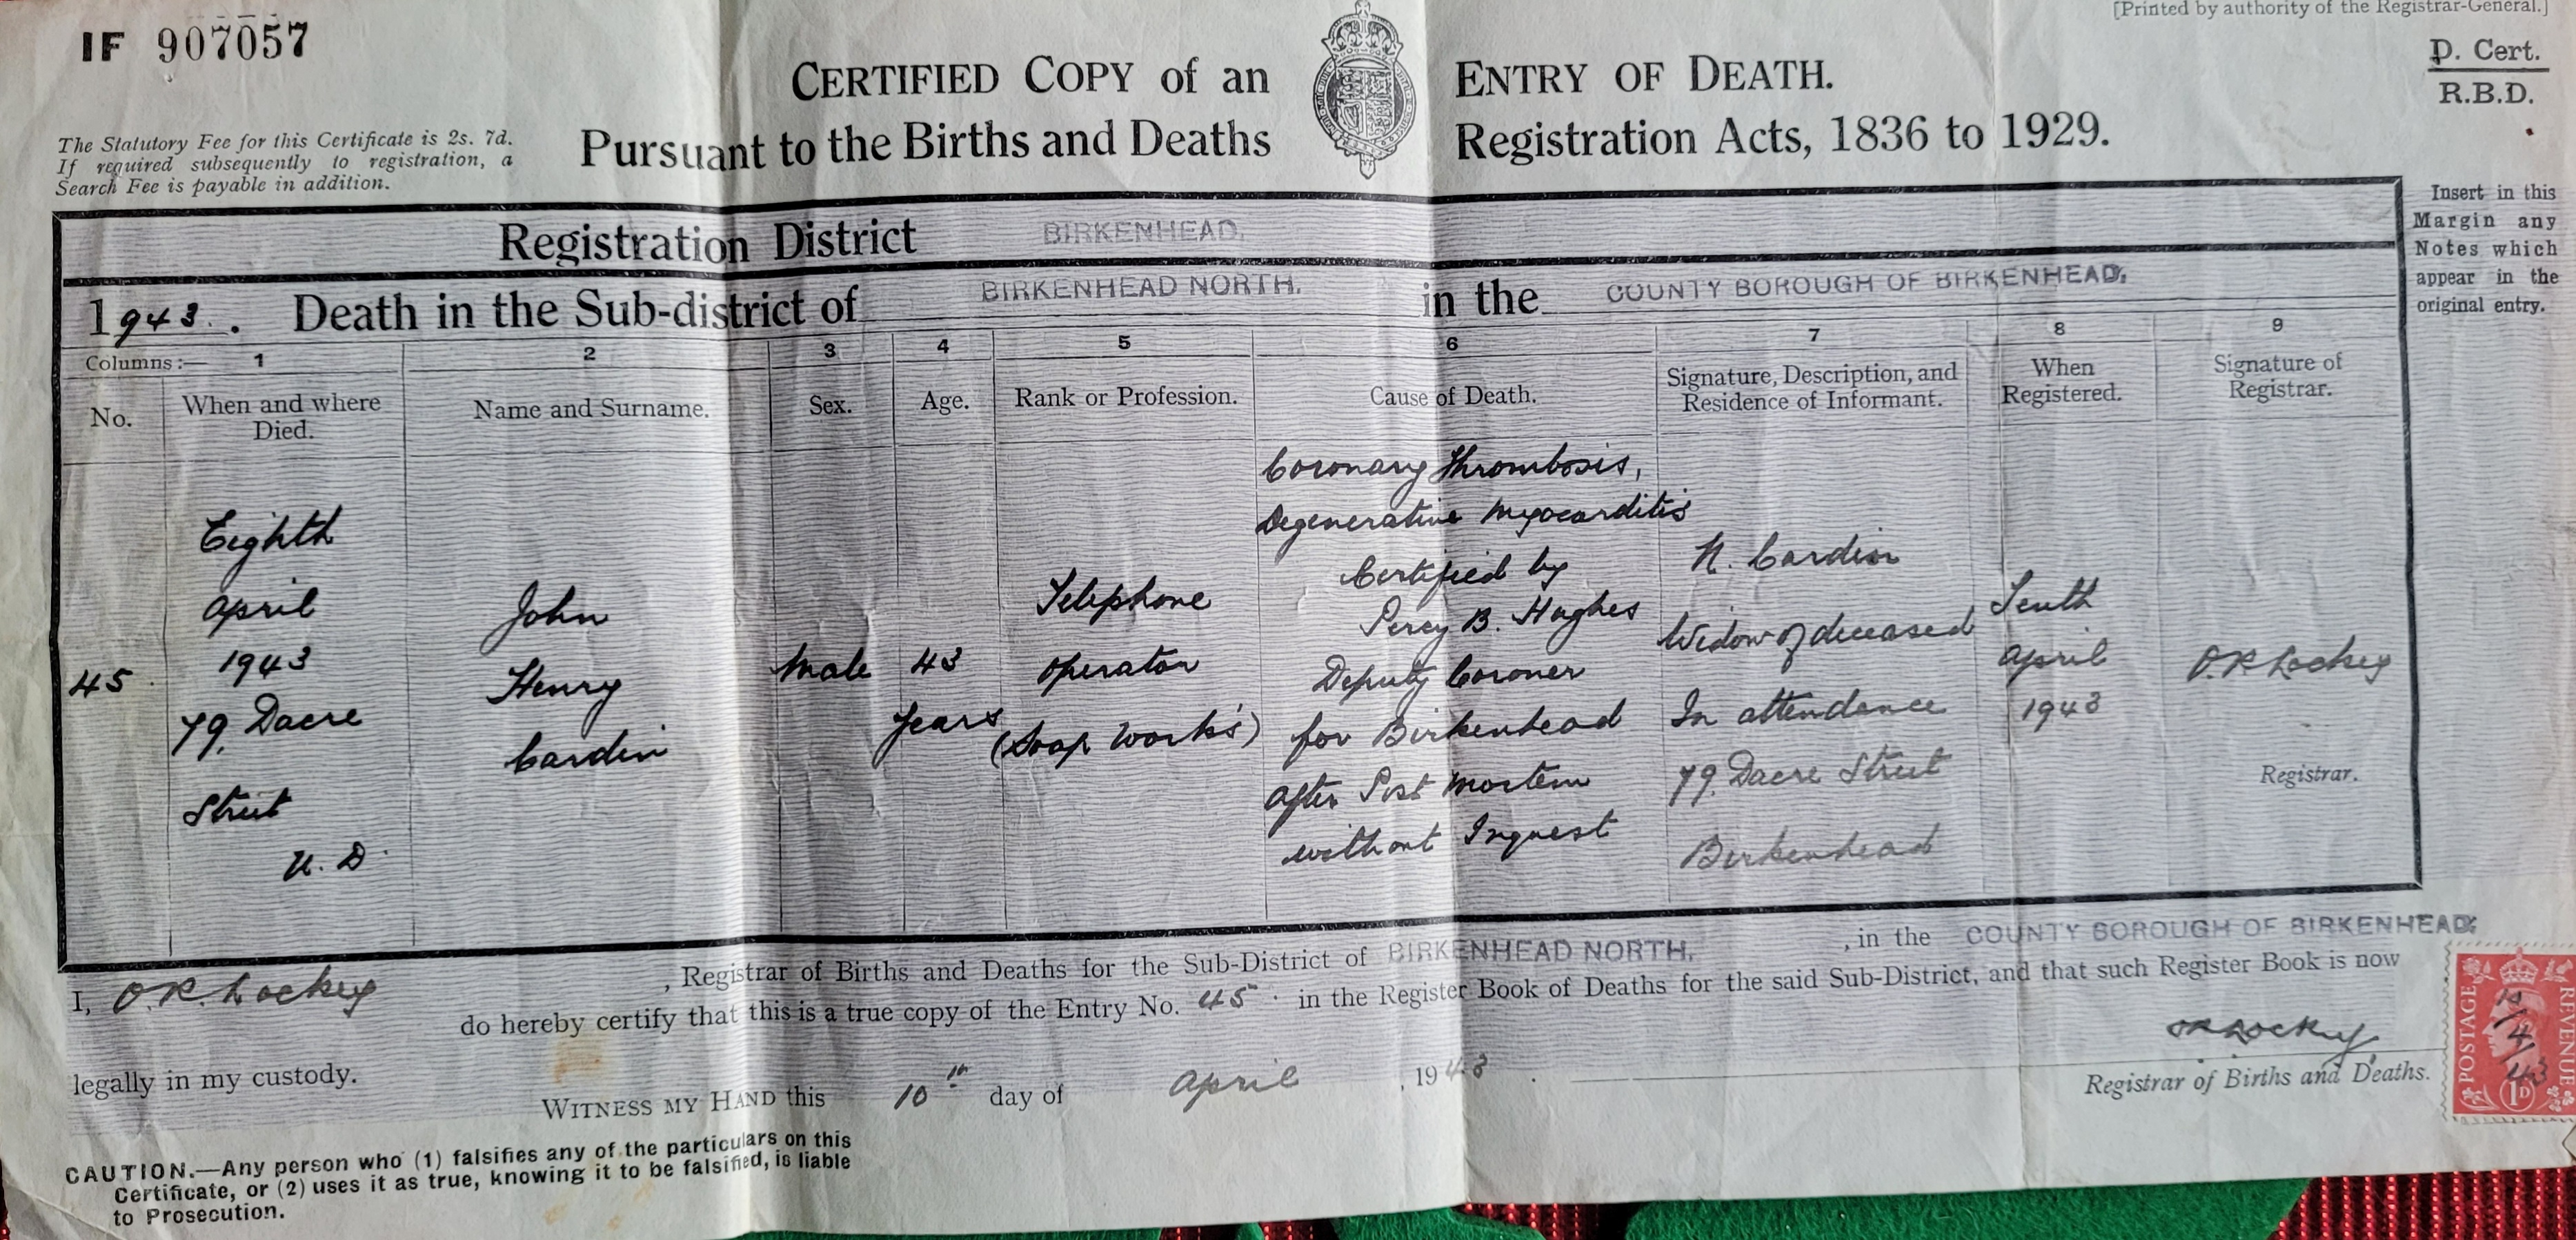 [Printed by authority of the Registrar-General.]
IF 907057
CERTIFIED COPY of an ENTRY OF DEATH.
D. Cert.
R.B.D.
Pursuant to the Births and Deaths Registration Acts, 1836 to 1929.
The Statutory Fee for this Certificate is 2s. 7d.
If required subsequently to registration, a
Search Fee is payable in addition.
Insert in this
Margin any
Notes which
appear in the
original entry.
Registration District BIRKENHEAD.
1943. Death in the Sub-district of BIRKENHEAD NORTH. in the COUNTY BOROUGH OF BIRKENHEAD.
Columns:— 1 2 3 4 5 6 7 8 9
No.
When and where
Died.
Name and Surname.
Sex.
Age.
Rank or Profession.
Cause of Death.
Signature, Description, and
Residence of Informant.
When
Registered.
Signature of
Registrar.
45
Eighth
April
1943
79, Dacre
Street
U. D.
John
Henry
Cardin
Male
43
years
Telephone
Operator
(Soap Works)
Coronary Thrombosis,
Degenerative Myocarditis
Certified by
Percy B. Hughes
Deputy Coroner
for Birkenhead
after Post Mortem
without Inquest
N. Cardin
Widow of deceased
In attendance
79, Dacre Street
Birkenhead
Tenth
April
1943
O.R. Lockey
Registrar.
I, O.R. Lockey, Registrar of Births and Deaths for the Sub-District of BIRKENHEAD NORTH., in the COUNTY BOROUGH OF BIRKENHEAD,
do hereby certify that this is a true copy of the Entry No. 45 in the Register Book of Deaths for the said Sub-District, and that such Register Book is now
legally in my custody.
WITNESS MY HAND this 10th day of April, 1943.
OR Lockey
Registrar of Births and Deaths.
POSTAGE REVENUE
10/4/43
1D
CAUTION.—Any person who (1) falsifies any of the particulars on this
Certificate, or (2) uses it as true, knowing it to be falsified, is liable
to Prosecution.